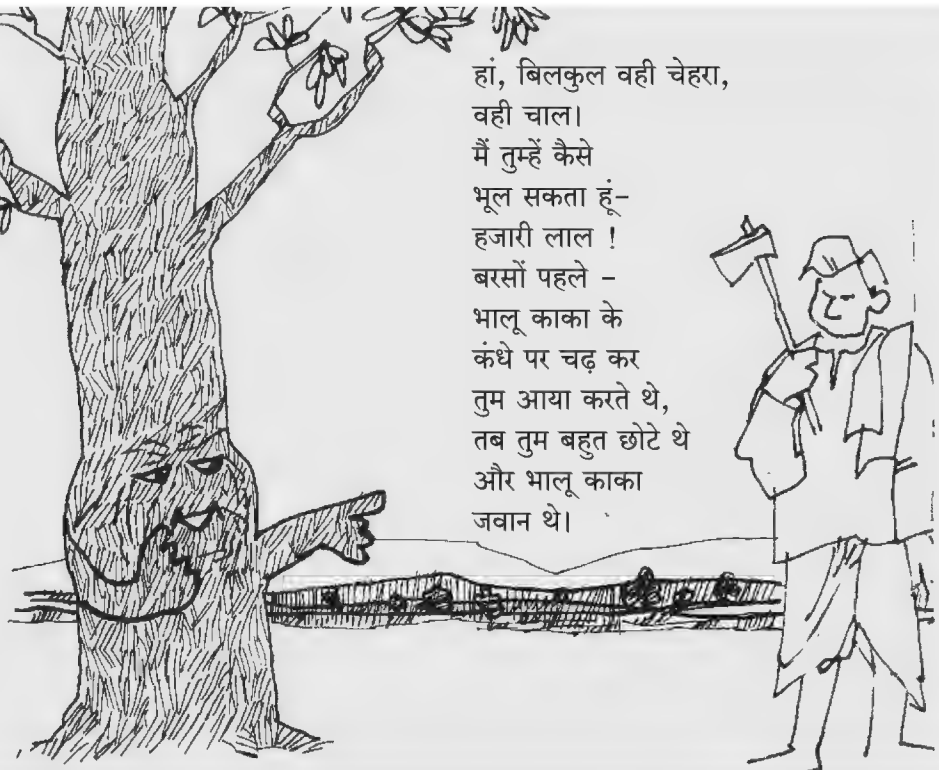 हां, बिलकुल वही चेहरा,
वही चाल।
मैं तुम्हें कैसे
भूल सकता हूं-
हजारी लाल !
बरसों पहले -
भालू काका के
कंधे पर चढ़ कर
तुम आया करते थे,
तब तुम बहुत छोटे थे
और भालू काका
जवान थे।